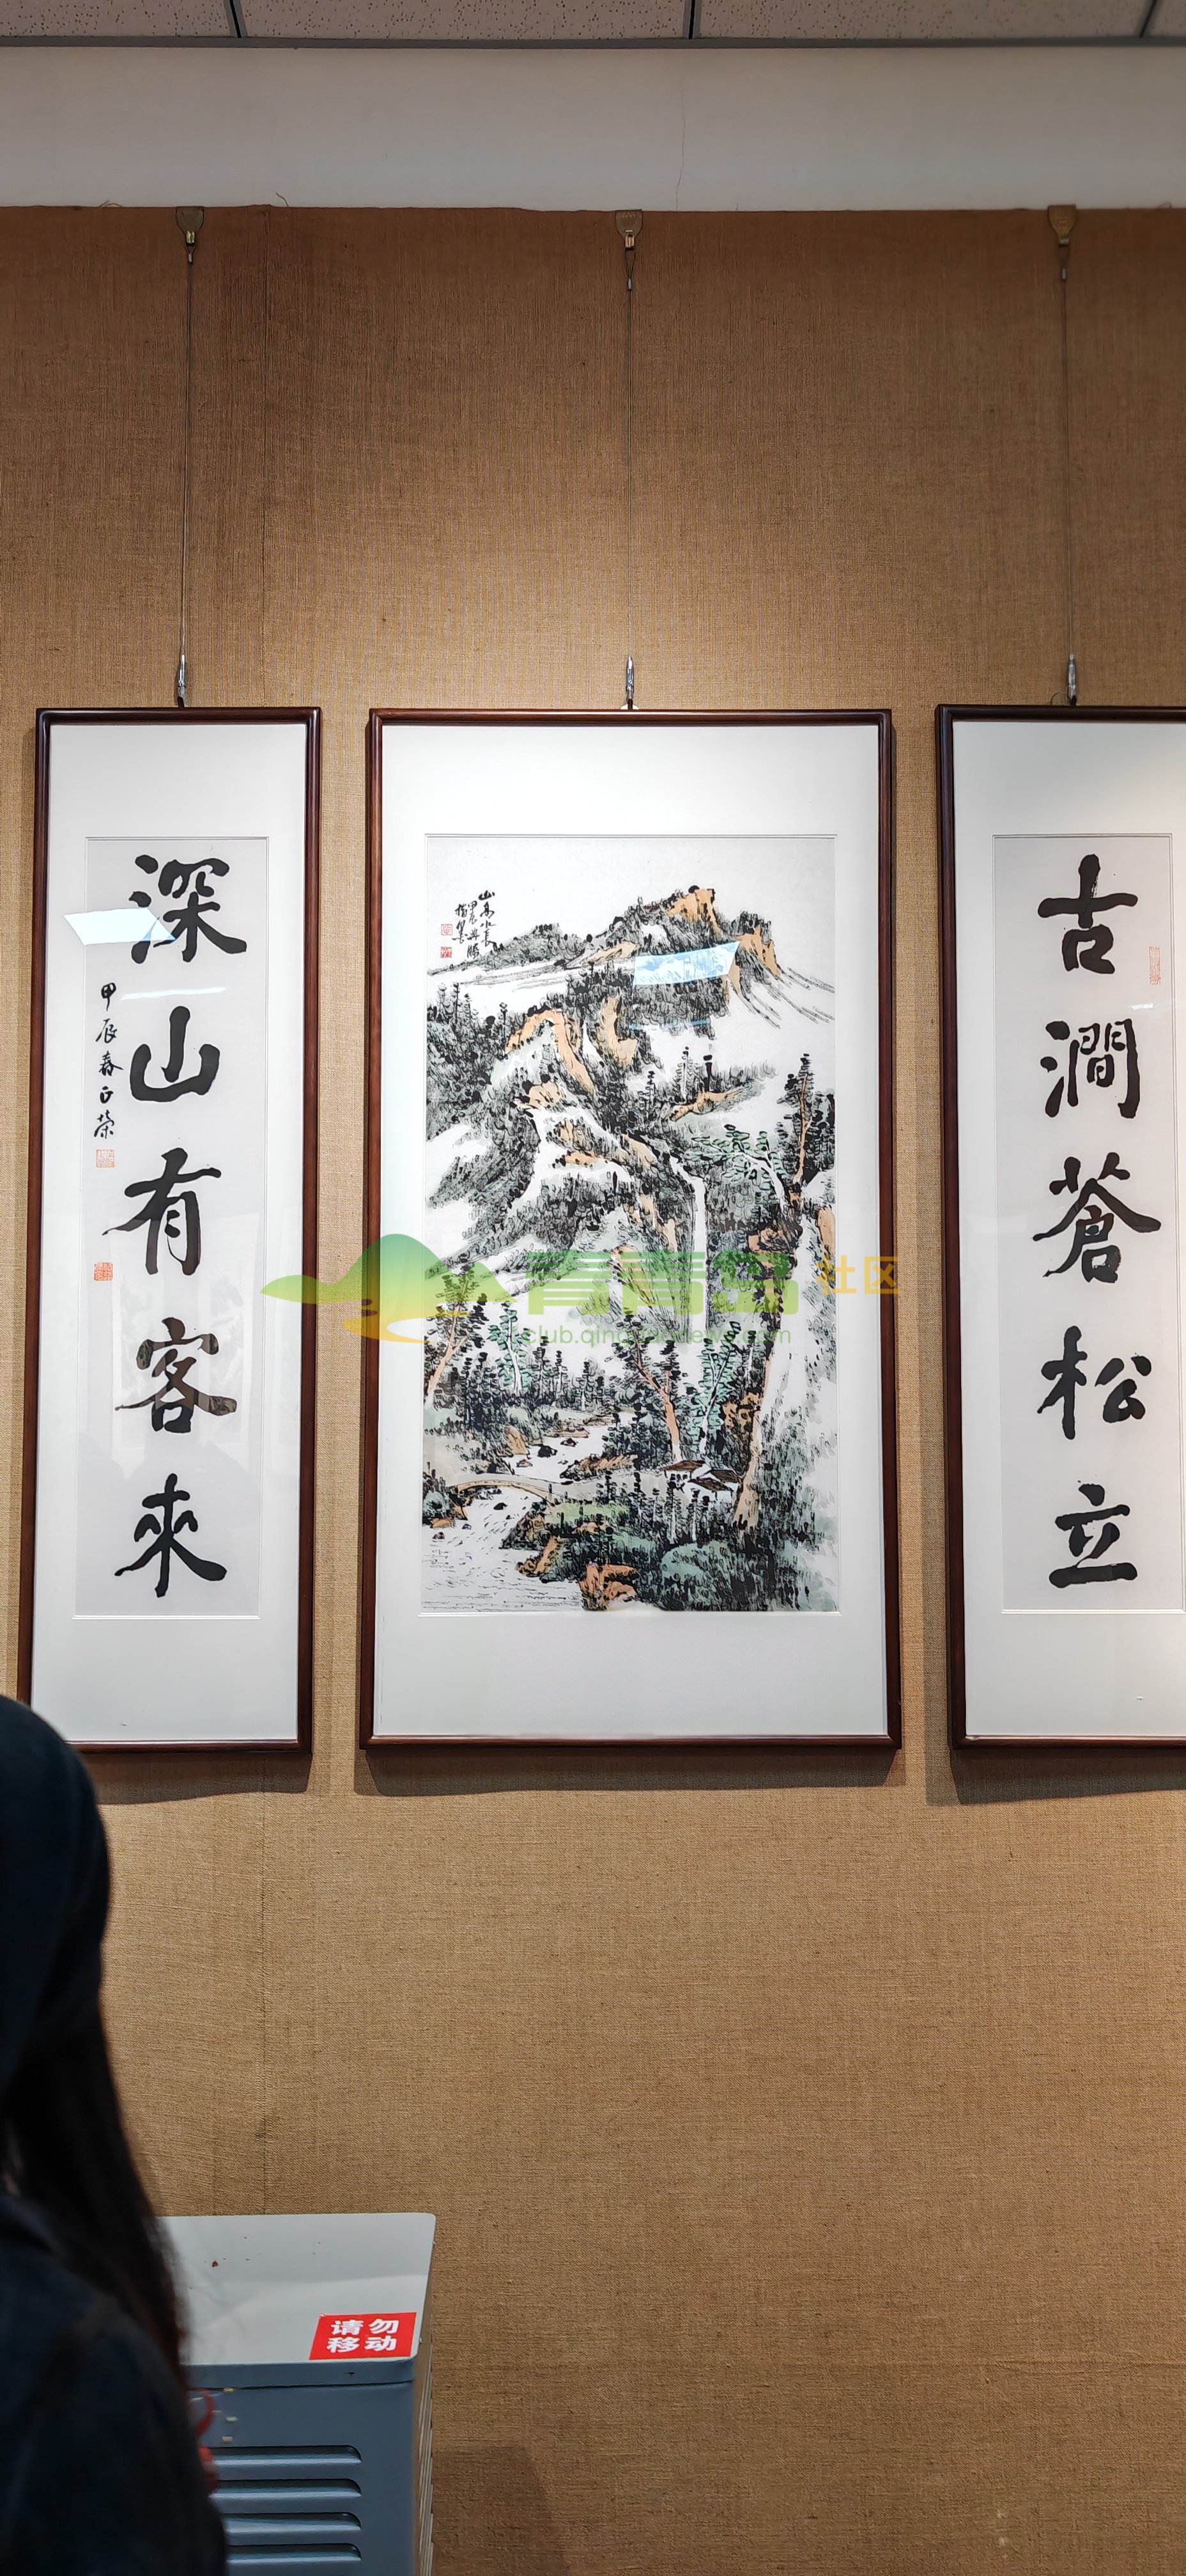 古澗蒼松立
深山有客來
甲辰春正荣
山高水長
青青岛社区
club.qingdaonews.com
请勿
移动